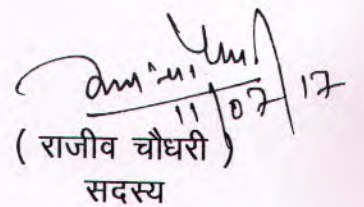 11/07/17
( राजीव चौधरी )
सदस्य